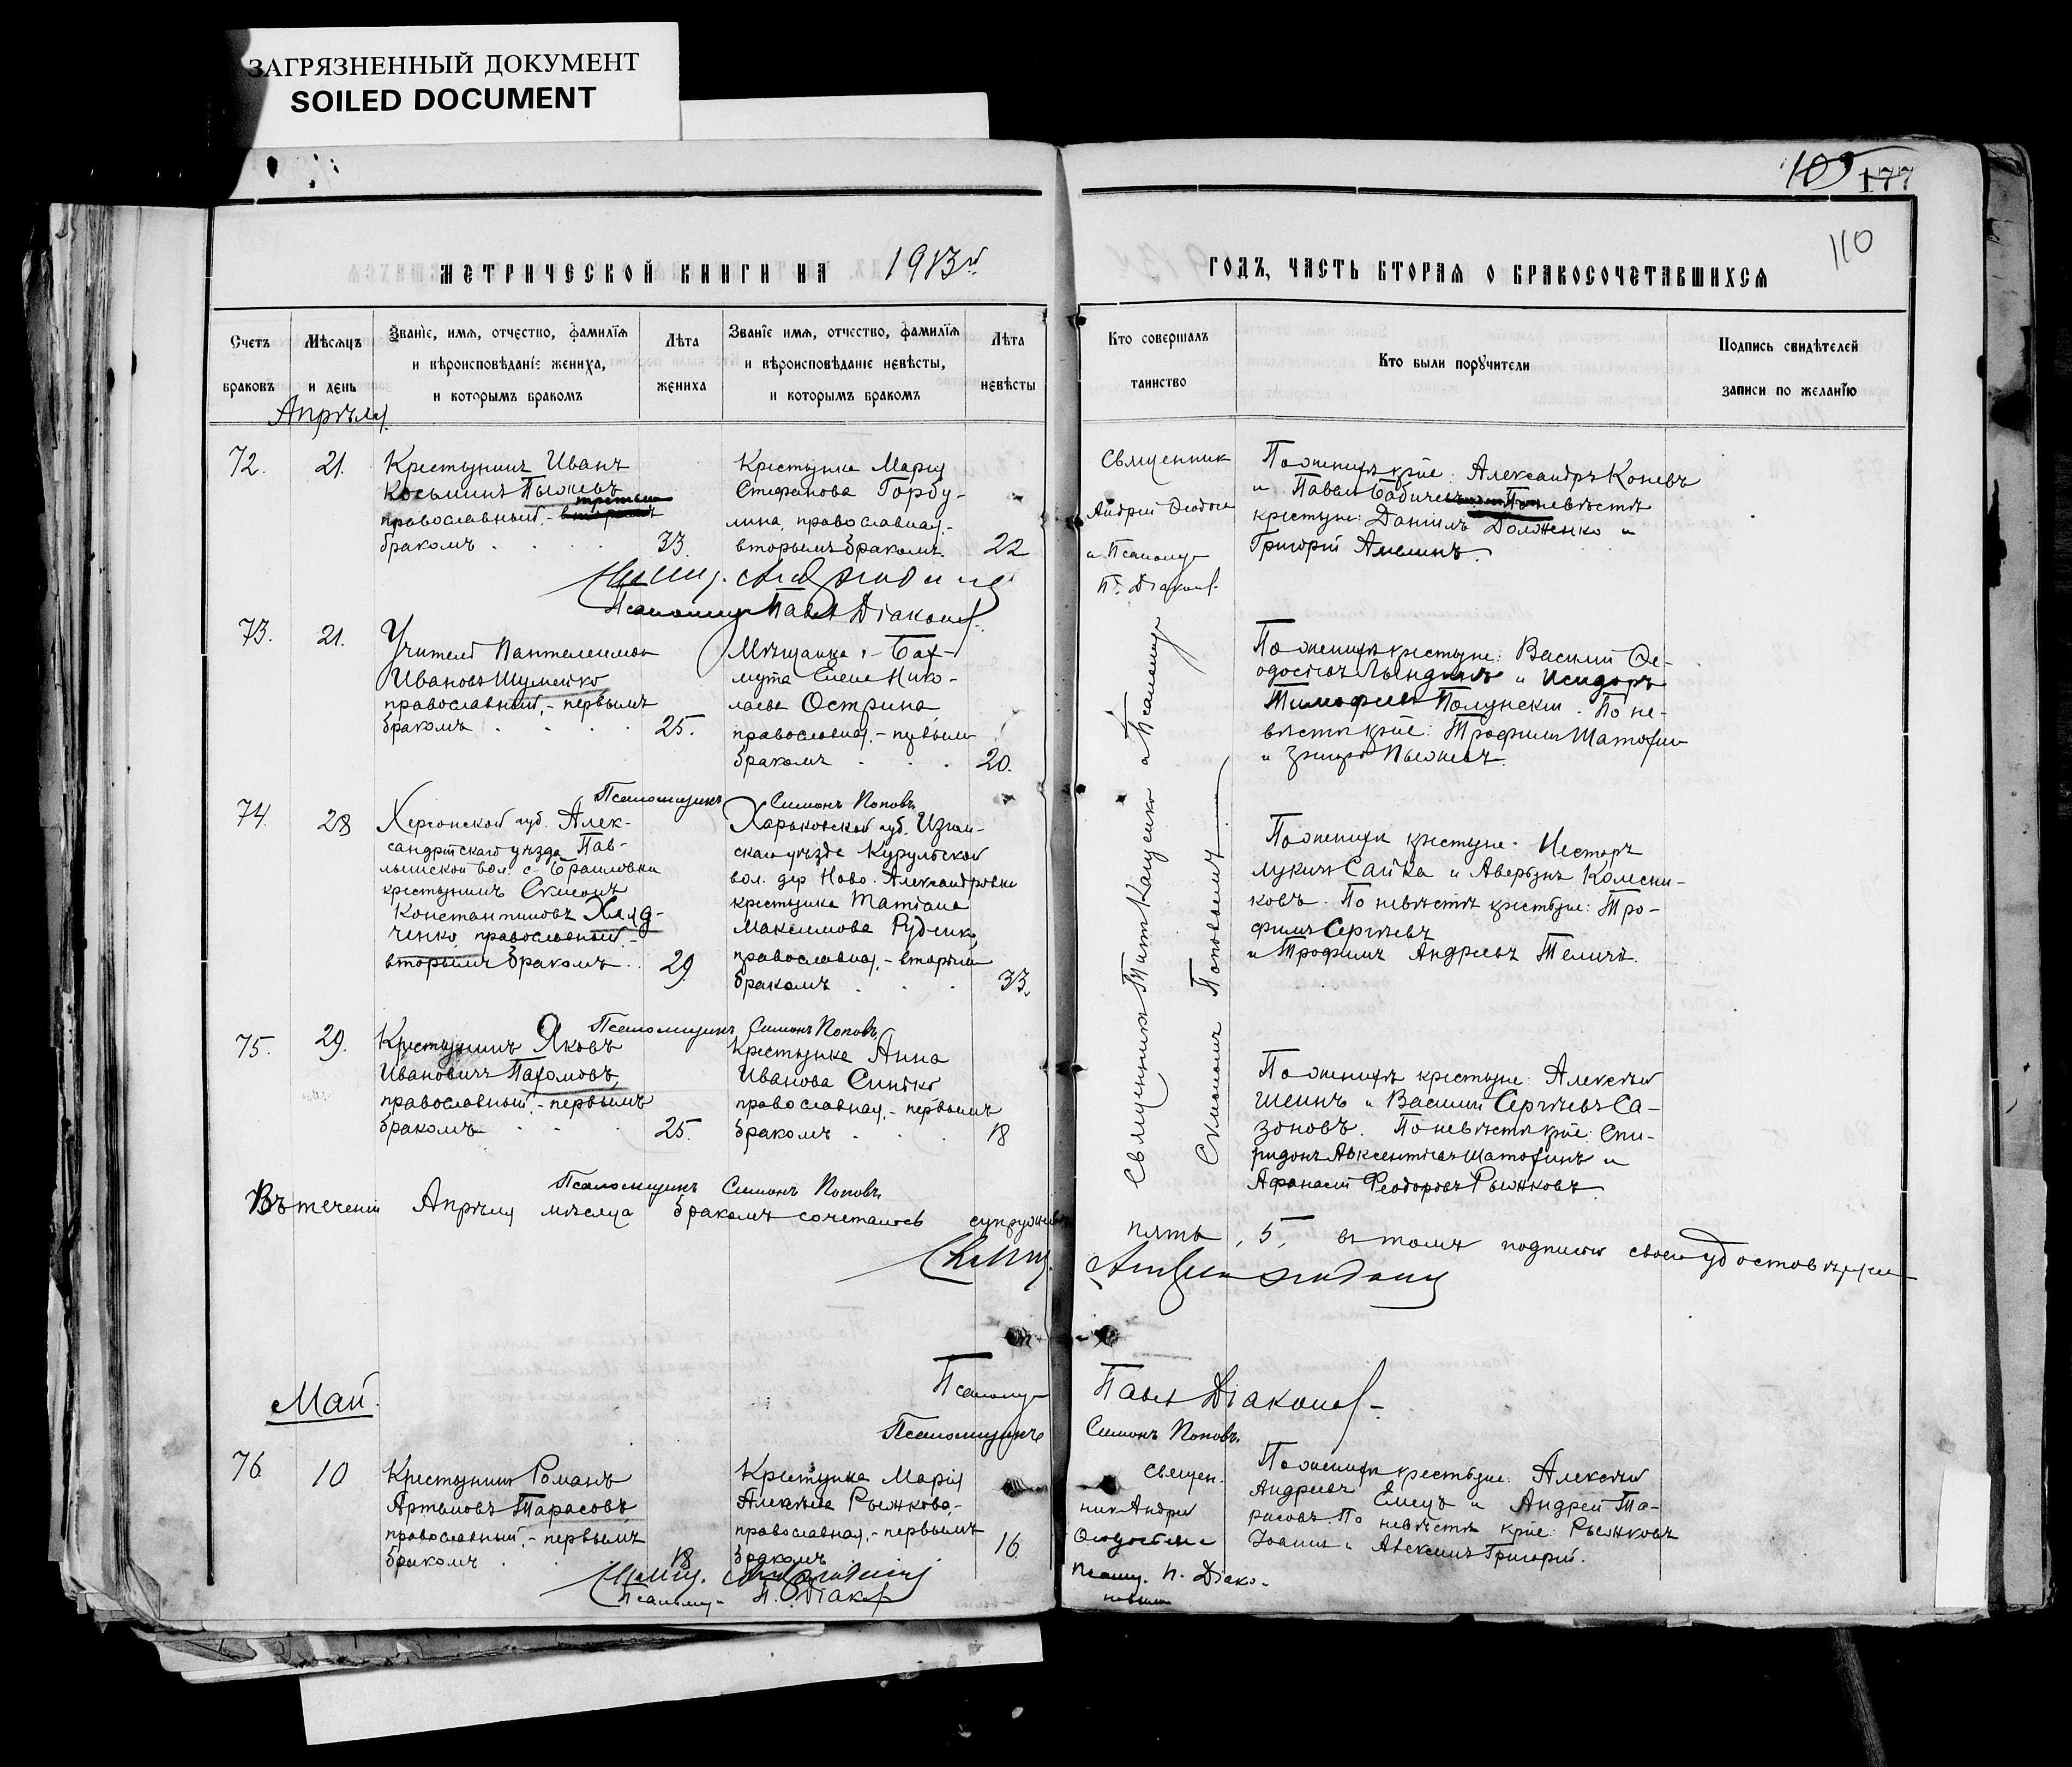 ЗАГРЯЗНЕННЫЙ ДОКУМЕНТ
SOILED DOCUMENT
105 177
110
МЕТРИЧЕСКОЙ КНИГИ НА 1913й
ГОДЪ, ЧАСТЬ ВТОРАЯ О БРАКОСОЧЕТАВШИХСЯ
Счетъ браковъ
Мѣсяцъ и день
Званіе, имя, отчество, фамилія
и вѣроисповѣданіе жениха,
и которымъ бракомъ
Лѣта жениха
Званіе имя, отчество, фамилія
и вѣроисповѣданіе невѣсты,
и которымъ бракомъ
Лѣта невѣсты
Кто совершалъ таинство
Кто были поручители
Подпись свидѣтелей
записи по желанію
Апрѣля
72.
21.
Крестьянинъ Иванъ
Косьминъ Пыжевъ
третьим
православный, - вторымъ
бракомъ
33.
Крестьянка Марія
Стефанова Горбу-
лина, православная,
вторымъ бракомъ.
22
Священник
Андрей
и Псаломщ-
П. Діаконов
По женихѣ крĩе: Александръ Коневъ
и Павелъ Бабичевъ. По невѣстѣ
крестьяне: Даніилъ Долженко и
Григорій
Псаломщ Павел Діаконов.
73.
21.
Учитель Пантелеимон
Ивановъ Шумейко
православный, - первымъ
бракомъ
25.
Мѣщанка г. Бах-
мута Елена Нико-
лаева Острина
православная, - первым
бракомъ
20.
По женихѣ крестьяне: Василій Ѳе-
одосіевъ и Исидоръ
Тимофеевъ Полунскій. По не-
вѣстѣ крĩе: Трофимъ Шатохин
и Пыжевъ.
Псаломщикъ Симонъ Поповъ
74.
28
Херсонской губ. Алек-
сандрійскаго уѣзда Пав-
лышской вол. с.
крестьянинъ Симонъ
Константиновъ Хала-
ченко, православный, -
вторымъ бракомъ
29
Харьковской губ. Изюм-
скаго уѣзда Курульской
вол. дер Ново-Александровки
крестьянка Татіана
Максимова Руденко,
православная, - вторым
бракомъ
33.
По женихѣ крестьяне: Несторъ
Лукичъ Сайка и Аверьянъ Колесни-
ковъ. По невѣстѣ крестьяне: Тро-
фимъ Сергѣевъ
и Трофимъ Андреевъ Теличъ.
Псаломщикъ Симонъ Поповъ
75.
29.
Крестьянинъ Яковъ
Ивановичъ Пахомовъ,
православный, - первымъ
бракомъ
25.
Крестьянка Анна
Иванова Синько
православная, - первымъ
бракомъ
18
По женихѣ крестьяне: Алексѣй
Шеинъ и Василій Сергѣевъ Са-
зоновъ. По невѣстѣ крĩе: Спи-
ридонъ Авксентіевъ Шатохинъ и
Афанасій Ѳеодоровъ Рыжковъ.
Псаломщикъ Симонъ Поповъ
Священникъ Титъ и Псаломщ
Симономъ Поповымъ
Въ теченіи Апрѣля мѣсяца бракомъ сочеталось супружествъ пять, 5, въ томъ подписью своею удостовѣряем
Свящ.
Псаломщ- Павел Діаконов -
Псаломщикъ Симонъ Поповъ.
Май.
76
10
Крестьянинъ Романъ
Артемовъ Тарасовъ
православный, - первымъ
бракомъ
18
Крестьянка Марія
Алексѣева Рыжкова,
православная, - первымъ
бракомъ
16
Священ.
никъ Андрей
Псалом. П. Діако-
новым
По женихѣ крестьяне: Алексѣй
Андреевъ Емецъ и Андрей Та-
расовъ. По невѣстѣ крĩе: Рыжковъ
Іоаннъ и Григорій.
Свящ.
Псаломщ- П. Діаков